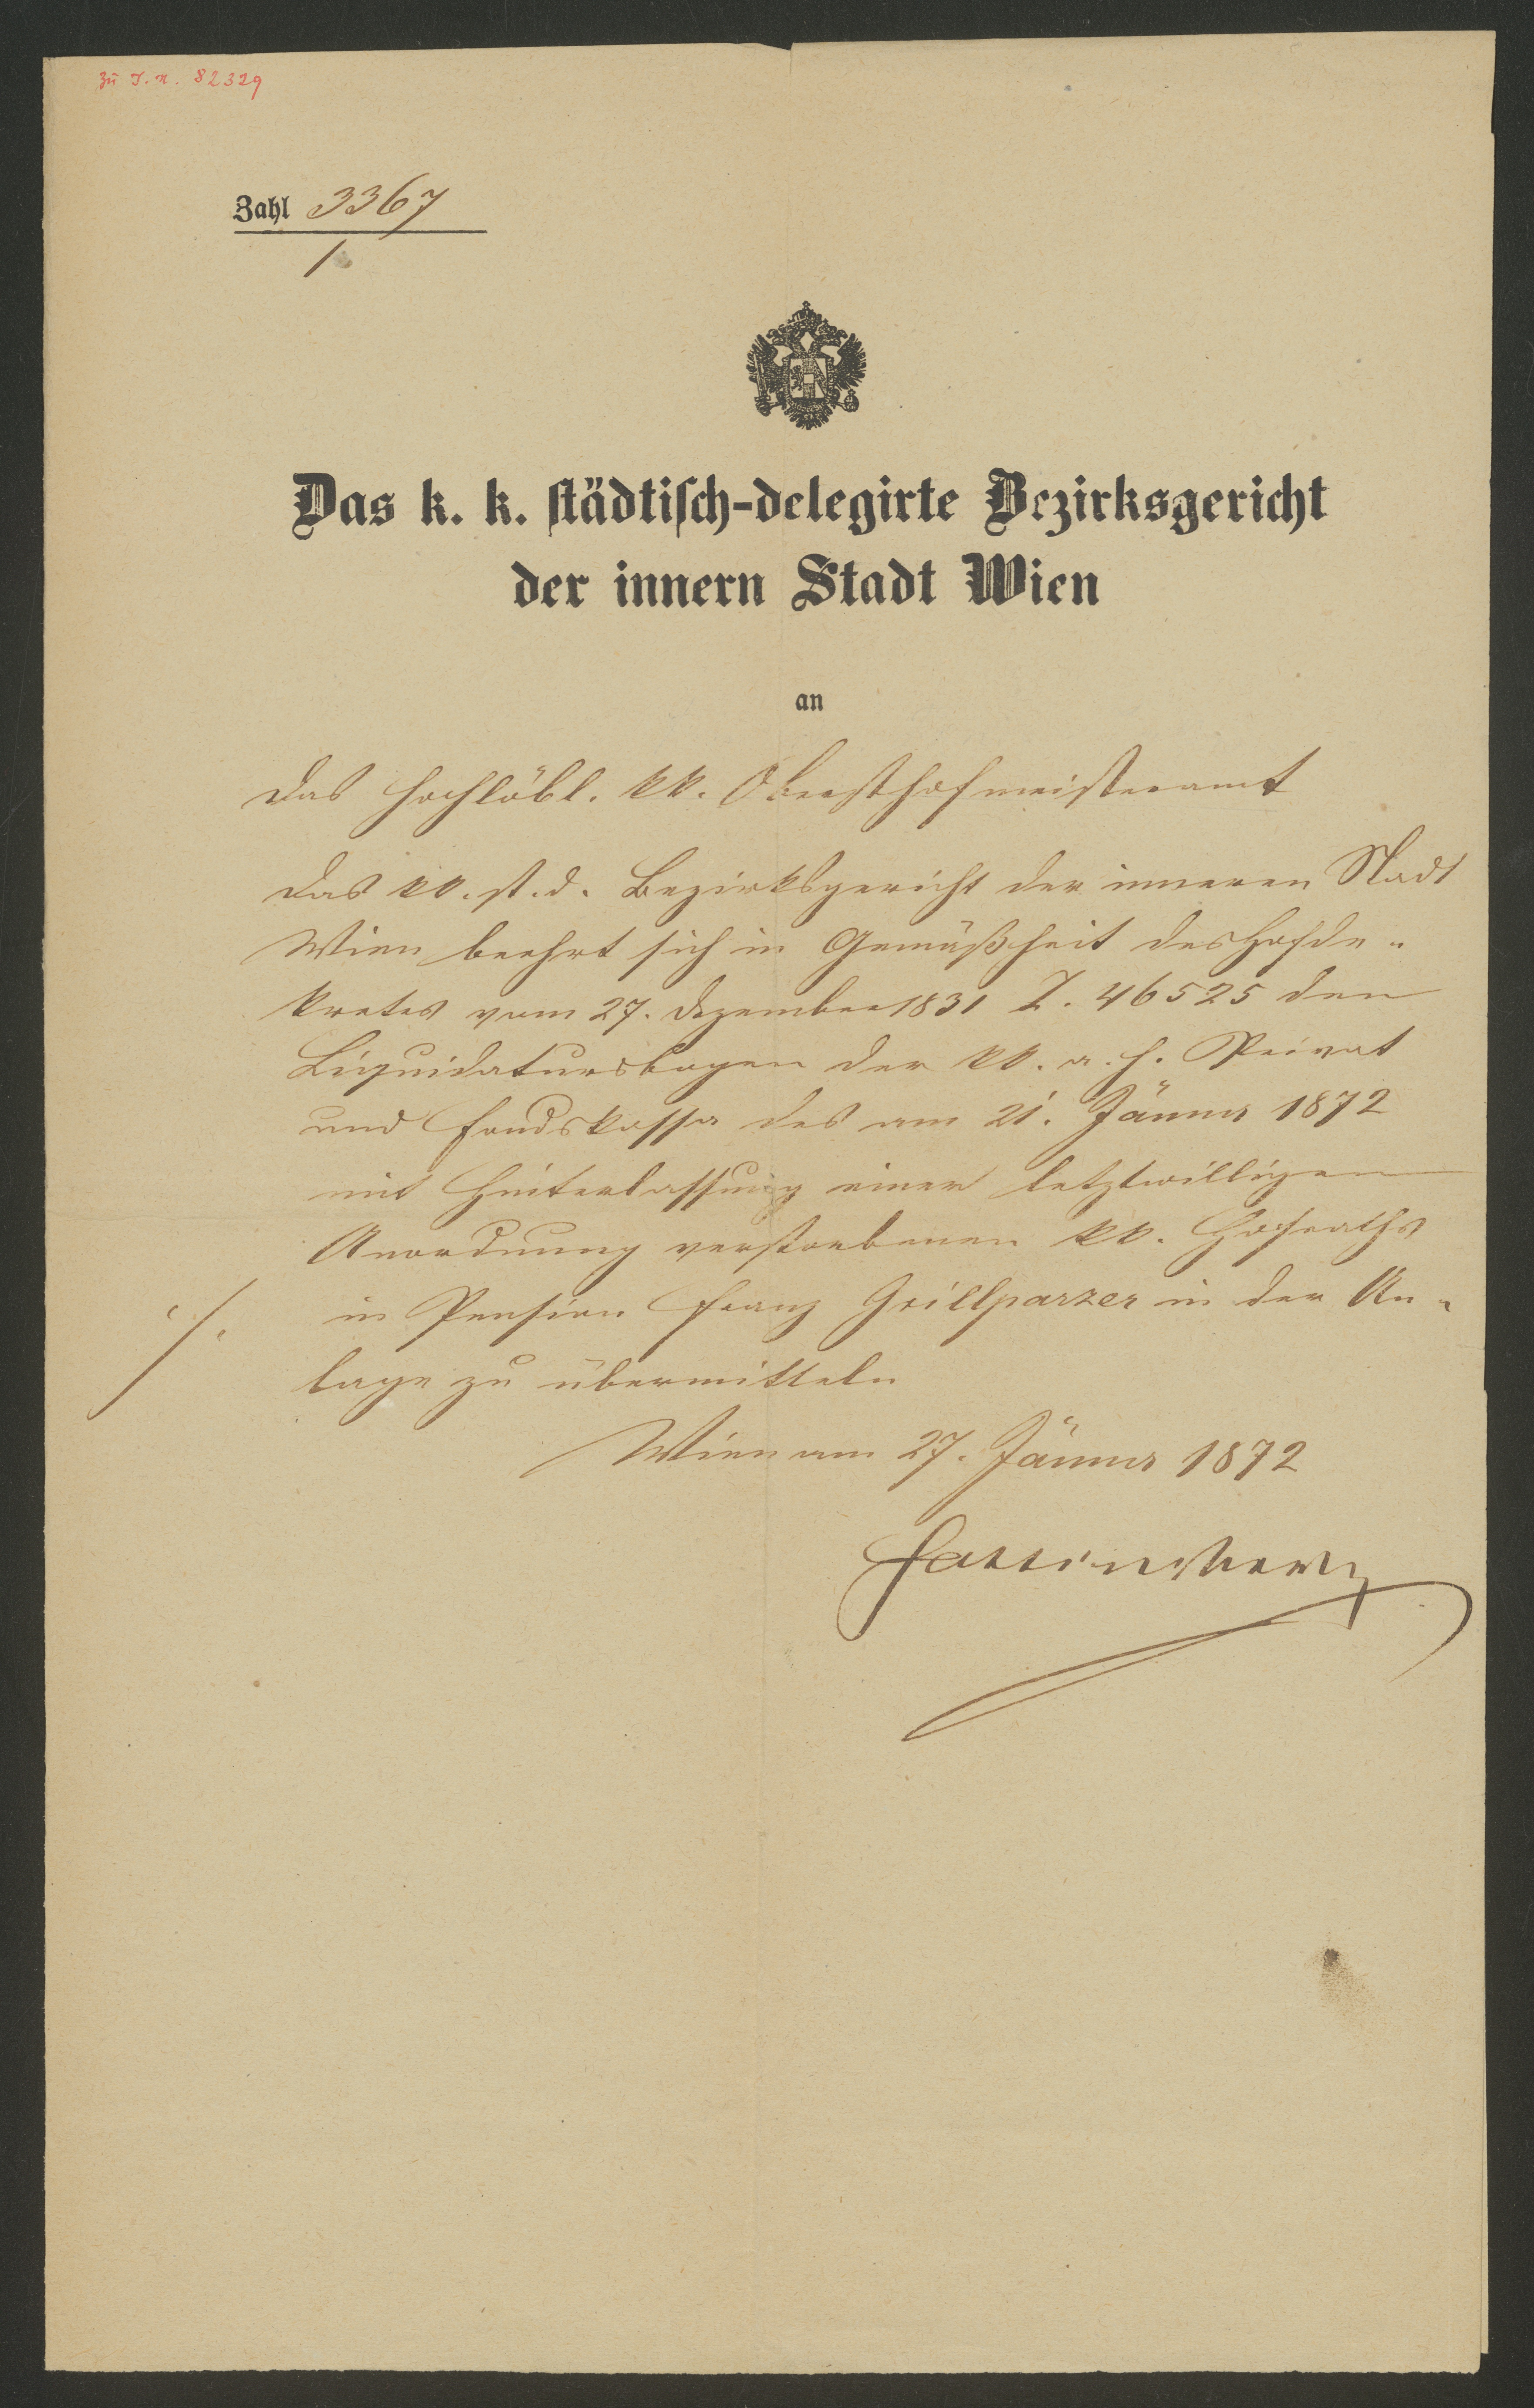 zu J. N. 82329
Zahl 3367
/
Das k. k. städtisch-delegirte Bezirksgericht
der innern Stadt Wien
an
das hochlöbl. kk. Obersthofmeisteramt
Das kk. st. d. Bezirksgericht der inneren Stadt
Wien beehrt sich in Gemäßheit des Hofde-
kretes vom 27. Dezember 1831 Z. 46525 den
Liquidatursbogen der kk. a. h. Privat
und Fondskassa des am 21. Jänner 1872
mit Hinterlassung einer letztwilligen
Anordnung verstorbenen kk. Hofraths
./. in Pension Franz Grillparzer in der An-
lage zu übermitteln
Wien am 27. Jänner 1872